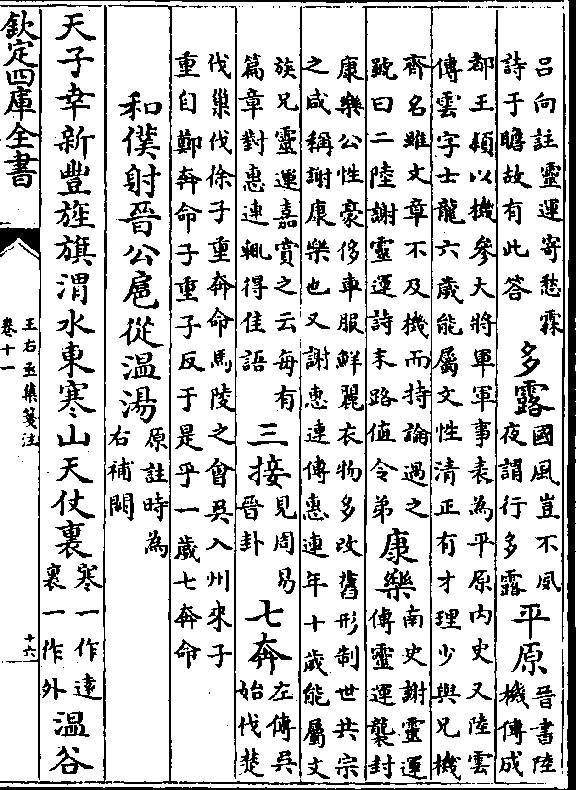 呂向註靈運寄愁霖
詩于瞻故有此答
多露
國風豈不夙
夜謂行多露
平原
晉書陸
機傳成
都王頴以機參大將軍軍事表為平原内史又陸雲
傳雲字士龍六歲能屬文性清正有才理少與兄機
齊名雖文章不及機而持論過之
號曰二陸謝靈運詩末路值令弟
康樂
南史謝靈運
傳靈運襲封
康樂公性豪侈車服鮮麗衣物多改舊形制世共宗
之咸稱謝康樂也又謝惠連傳惠連年十歲能屬文
族兄靈運嘉賞之云每有
篇章對惠連輒得佳語
三接
見周易
晉卦
七奔
左傳吳
始伐楚
伐巢伐徐子重奔命馬陵之會吳入州來子
重自鄭奔命子重子反于是乎一歲七奔命
和僕射晉公扈從温湯
原註時為
右補闕
天子幸新豐旌旗渭水東寒山天仗裏
寒一作遠
裏一作外
温谷
欽定四庫全書
王右丞集箋注
卷十一
十六